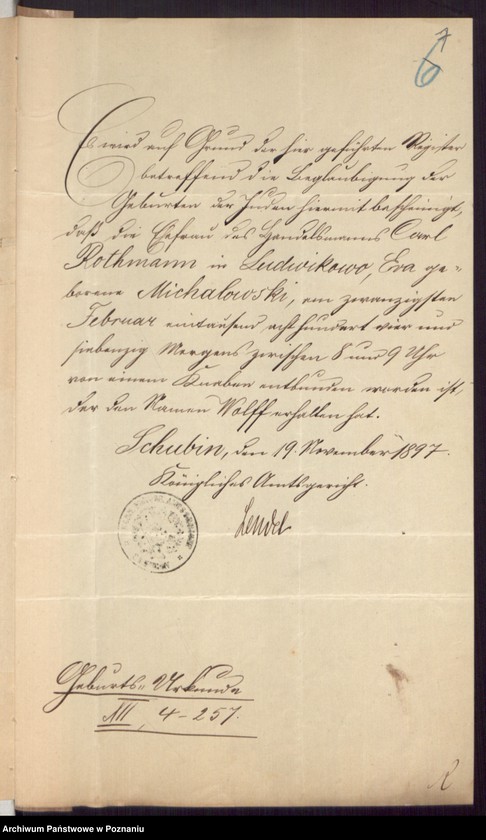 7
6
Es wird auf Grund der hier geführten Register
betreffend die Beglaubigung der
Geburten der Juden hiermit bescheinigt,
daß die Ehefrau des Handelsmanns Carl
Rothmann in Ludwikowo, Eva ge-
borene Michalowski, am zwanzigsten
Februar eintausend achthundert vier und
siebenzig Morgens zwischen 8 und 9 Uhr
von einem Knaben entbunden worden ist,
der den Namen Wolff erhalten hat.
Schubin, den 19. November 1897.
Königliches Amtsgericht.
Geburts-Urkunde
XII, 4-257.
Archiwum Państwowe w Poznaniu